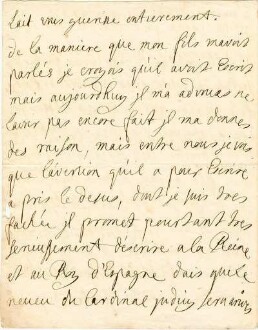 lait vous guerira entierement.
de la maniere que mon fils mavoit
parlés je croyois quil avoit Escrit
mais aujourdhuy il ma advouas ne
lavoir pas encore fait il ma donnes
des raison, mais entre nous je vois
que laversion quil a pour Escrire
a pris le desus, dont je suis tres
fachée il promet pourtant tres
serieusement descrire a la Reine
et au Roy d'Espagne dais que le
neveu du Cardinal judice